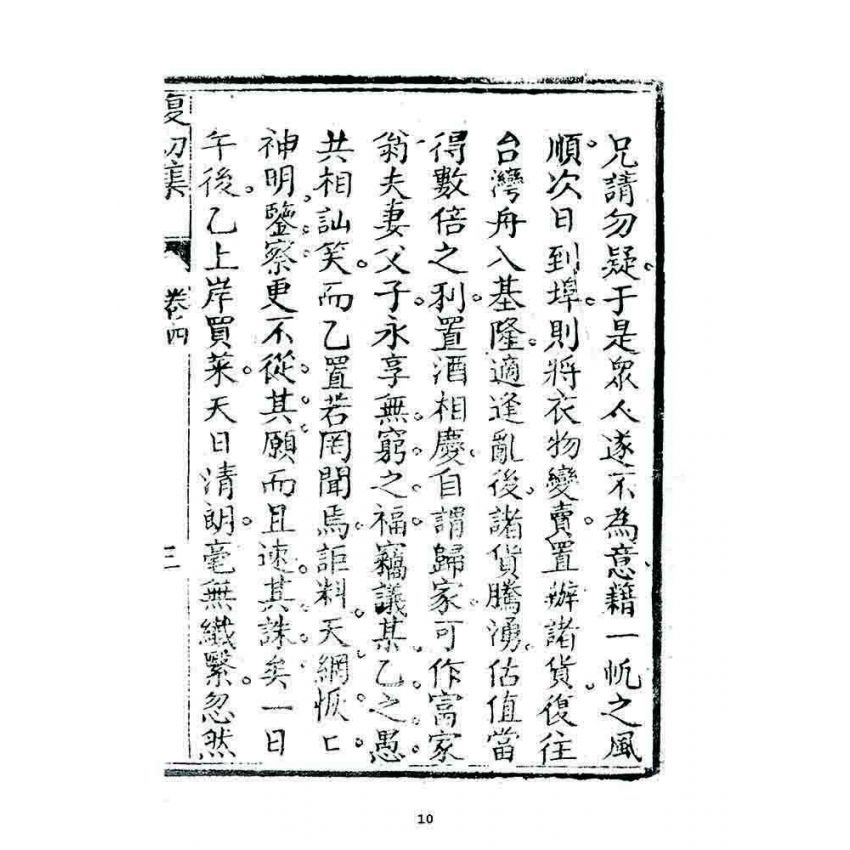 兄請勿疑于是眾人遂不為意藉一帆之風
順次日到埠則將衣物變賣置辦諸貨復往
台灣舟入基隆適逢亂後諸貨騰湧估值當
得數倍之利置酒相慶自謂歸家可作富家
翁夫妻父子永享無窮之福竊議某乙之愚
共相訕笑而乙置若罔聞焉詎料天網恢匕
神明鑒察更不從其願而且速其誅矣一日
午後乙上岸買菜天日清朗毫無纖緊忽然
卷四
三
10